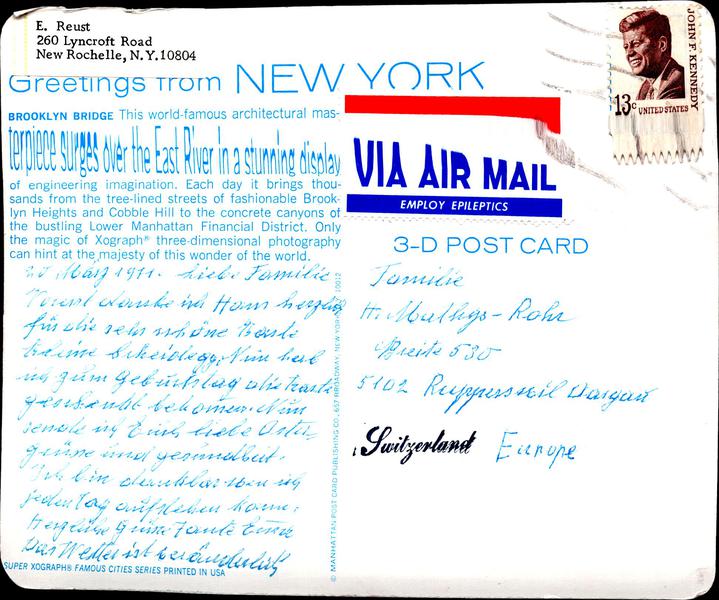 E. Reust
260 Lyncroft Road
New Rochelle, N.Y. 10804
Greetings from NEW YORK
BROOKLYN BRIDGE This world-famous architectural mas-
terpiece surges over the East River in a stunning display
of engineering imagination. Each day it brings thou-
sands from the tree-lined streets of fashionable Brook-
lyn Heights and Cobble Hill to the concrete canyons of
the bustling Lower Manhattan Financial District. Only
the magic of Xograph® three-dimensional photography
can hint at the majesty of this wonder of the world.
März liebe Familie
danke ich Hans herzlich
für die sehr schöne Karte
Nun hab
ich zum Geburtstag die Karte
Nun
sende ich Euch liebe Oster
grüsse und gesundheit.
Ich bin dankbar wen ich
jeden Tag aufstehen kann.
Herzliche Grüsse Tante Emma
Das Wetter ist veränderlich
SUPER XOGRAPH® FAMOUS CITIES SERIES PRINTED IN USA
© MANHATTAN POST CARD PUBLISHING CO., 657 BROADWAY, NEW YORK 10012
JOHN F. KENNEDY
13c UNITED STATES
VIA AIR MAIL
EMPLOY EPILEPTICS
3-D POST CARD
Familie
H. Mathys-Rohr
Breite 530
5102 Rupperswil Aargau
Switzerland Europe